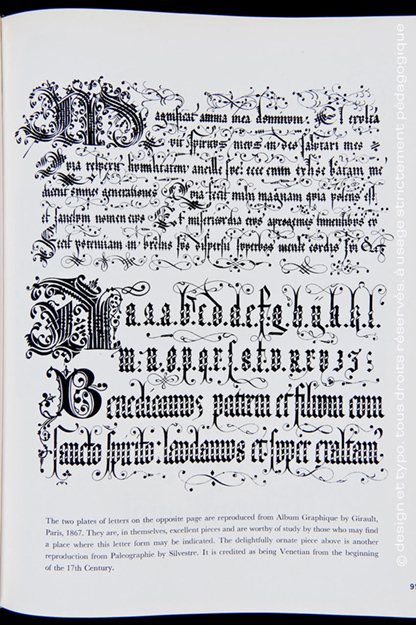 Magnificat anima mea dominum: Et exulta
vit spiritus meus in deo salutari meo
Quia respexit ancille sue: ecce enim ex hoc me
dicent omnes generationes Quia fecit mihi magnam quia potens est
et sanctum nomen eius Et misericordia eius timentibus eum
Fecit potentiam in suo superbos mente cordis sui
a.a.a.b.c.d.e.f.g.h.
m:n.o.p.q.r.ſ.s.t.v.
Benedicamus patrem et filium cum
sancto spirito: laudamus et super exaltam'
The two plates of letters on the opposite page are reproduced from Album Graphique by Girault,
Paris, 1867. They are, in themselves, excellent pieces and are worthy of study by those who may find
a place where this letter form may be indicated. The delightfully ornate piece above is another
reproduction from Paleographie by Silvestre. It is credited as being Venetian from the beginning
of the 17th Century.
© design et typo, tous droits réservés, à usage strictement pédagogique